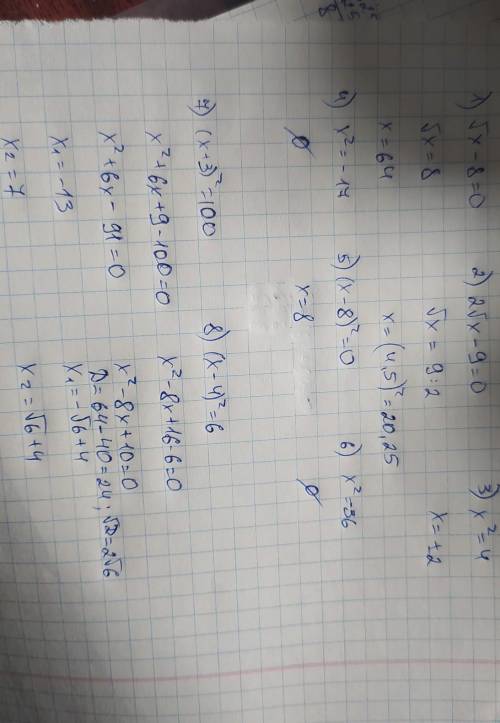 1) √x - 8 = 0
√x = 8
x = 64
2) 2√x - 9 = 0
√x = 9 : 2
x = (4,5)² = 20,25
3) x² = 4
x = ±2
4) x² = -17
∅
5) (x - 8)² = 0
x = 8
6) x² = -36
∅
7) (x + 3)² = 100
x² + 6x + 9 - 100 = 0
x² + 6x - 91 = 0
x₁ = -13
x₂ = 7
8) (x - 4)² = 6
x² - 8x + 16 - 6 = 0
x² - 8x + 10 = 0
D = 64 - 40 = 24; √D = 2√6
x₁ = -√6 + 4
x₂ = √6 + 4